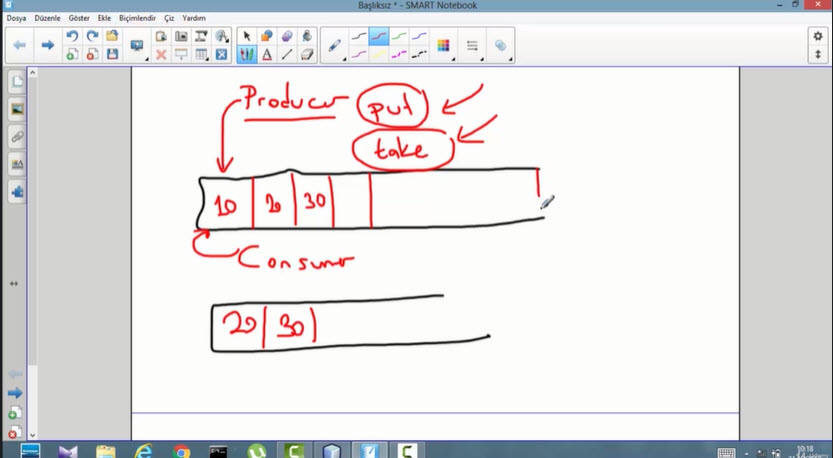 Başlıksız * - SMART Notebook
Dosya Düzenle Göster Ekle Biçimlendir Çiz Yardım
Producer put
take
10 20 30
Consumer
20 30
10:18